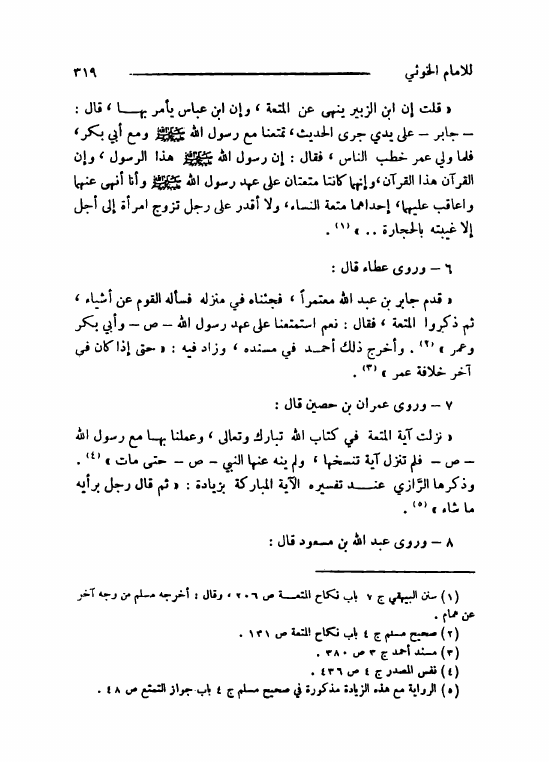 للامام الخوئي ٣١٩
« قلت إن ابن الزبير ينهى عن المتعة ، وإن ابن عباس يأمر بهـــا ، قال :
– جابر – على يدي جرى الحديث، تمتعنا مع رسول الله ﷺ ومع أبي بكر،
فلما ولي عمر خطب الناس ، فقال : إن رسول الله ﷺ هذا الرسول ، وإن
القرآن هذا القرآن،وإنها كانتا متعتان على عهد رسول الله ﷺ وأنا أنهى عنها
واعاقب عليها، إحداهما متعة النساء، ولا أقدر على رجل تزوج امرأة إلى أجل
إلا غيبته بالحجارة .. » (١) .
٦ – وروى عطاء قال :
« قدم جابر بن عبد الله معتمراً ، فجئناه في منزله فسأله القوم عن أشياء ،
ثم ذكروا المتعة ، فقال : نعم استمتعنا على عهد رسول الله – ص – وأبي بكر
وعمر » (٢) . وأخرج ذلك أحمـــد في مسنده ، وزاد فيه : « حتى إذا كان في
آخر خلافة عمر » (٣) .
٧ – وروى عمران بن حصين قال :
« نزلت آية المتعة في كتاب الله تبارك وتعالى ، وعملنا بهـا مع رسول الله
– ص – فلم تنزل آية تنسخها ، ولم ينه عنها النبي – ص – حتى مات » (٤) .
وذكرها الرَّازي عنـــد تفسيره الآية المباركة بزيادة : « ثم قال رجل برأيه
ما شاء » (٥) .
٨ – وروى عبد الله بن مسعود قال :
(١) سنن البيهقي ج ٧ باب نكاح المتعـــة ص ٢٠٦ ، وقال : أخرجه مسلم من وجه آخر
عن همام .
(٢) صحيح مسلم ج ٤ باب نكاح المتعة ص ١٣١ .
(٣) مسند أحمد ج ٣ ص ٣٨٠ .
(٤) نفس المصدر ج ٤ ص ٤٣٦ .
(٥) الرواية مع هذه الزيادة مذكورة في صحيح مسلم ج ٤ باب جواز التمتع ص ٤٨ .